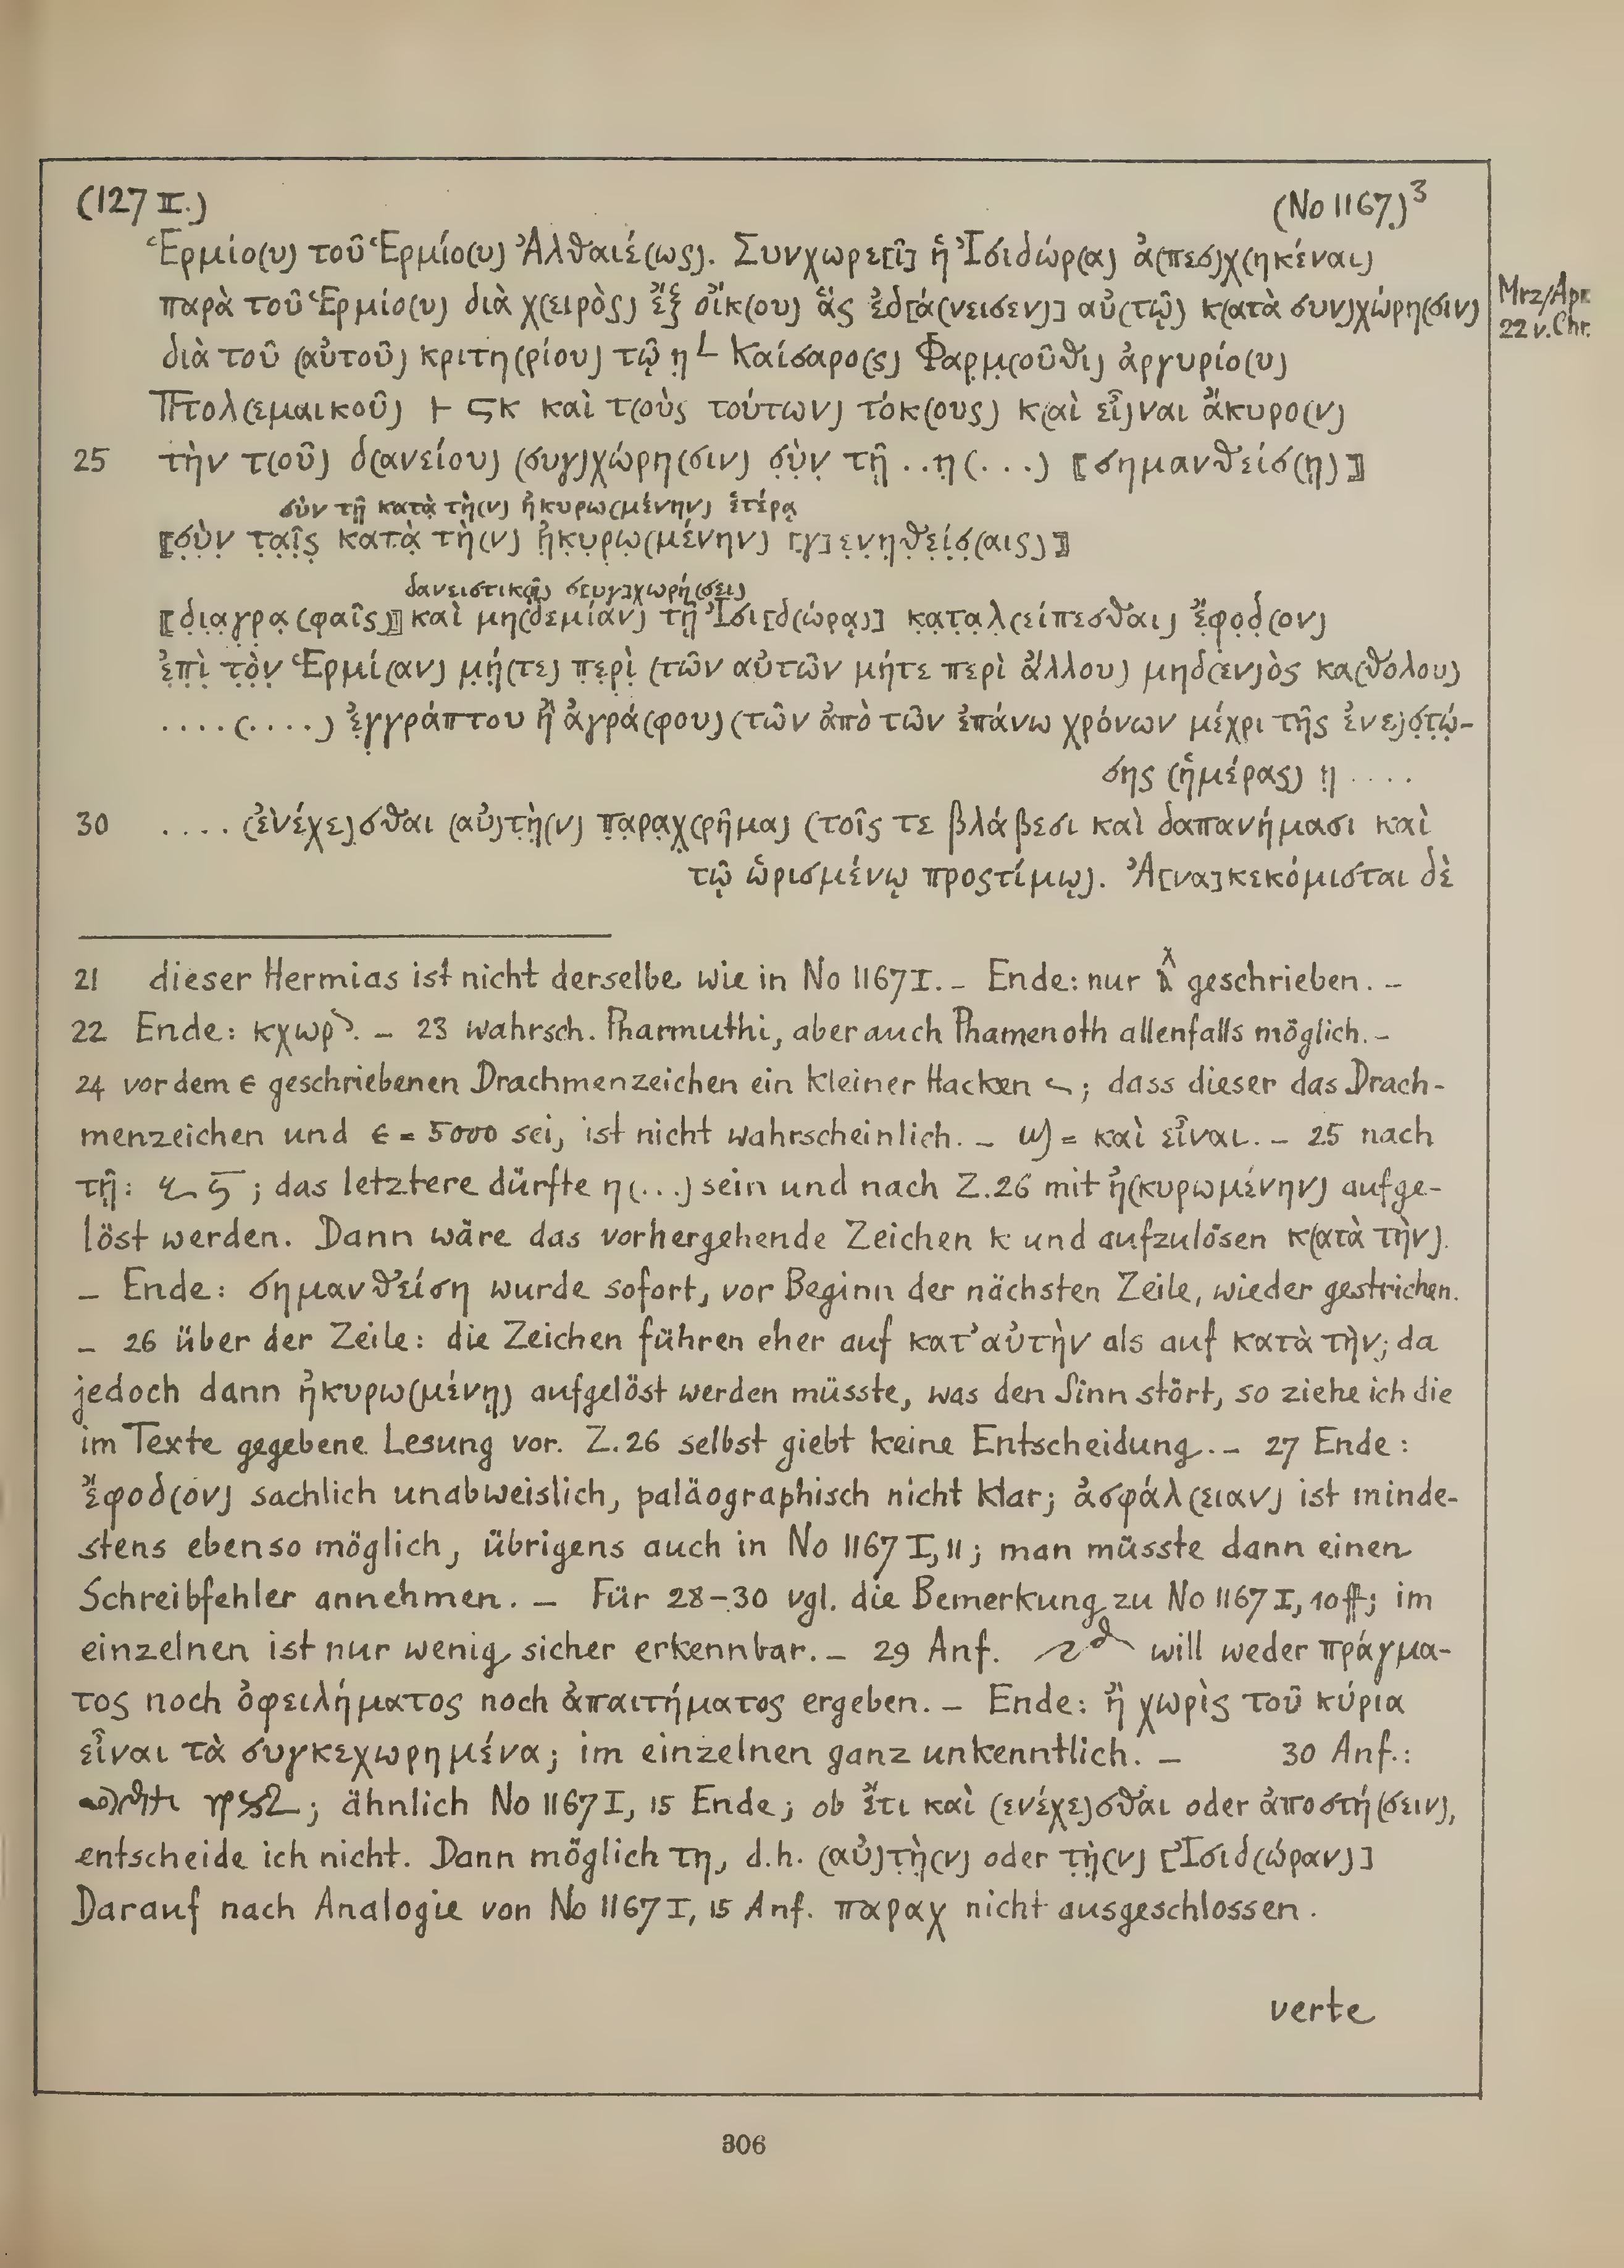 (127 II.) (No 1167)³
Ἑρμίο(υ) τοῦ Ἑρμίο(υ) Ἀλθαιέ(ως). Συνχωρε[ῖ] ἡ Ἰσιδώρ(α) ἀ(πεσ)χ(ηκέναι)
παρὰ τοῦ Ἑρμίο(υ) διὰ χ(ειρὸς) ἔξ οἴκ(ου) ἃς ἐδ[ά(νεισεν)] αὐ(τῷ) κ(ατὰ συν)χώρη(σιν)
Mrz/Apr.
22 v. Chr.
διὰ τοῦ (αὐτοῦ) κριτη(ρίου) τῷ η L Καίσαρο(ς) Φαρμ(οῦθι) ἀργυρίο(υ)
Πτολ(εμαικοῦ) Ͱ ϛκ καὶ τ(οὺς τούτων) τόκ(ους) κ(αὶ εἶ)ναι ἄκυρο(ν)
25 τὴν τ(οῦ) δ(ανείου) (συγ)χώρη(σιν) σὺν τῇ ..η(...) ⟦σημανθείσ(ῃ)⟧
σὺν τῇ κατὰ τὴ(ν) ἠκυρω(μένην) ἑτέρᾳ
⟦σὺν ταῖς κατὰ τὴ(ν) ἠκυρω(μένην) [γ]ενηθείσ(αις)⟧
δανειστικ(ῇ) σ[υγ]χωρή(σει)
⟦διαγρα(φαῖς)⟧ καὶ μη(δεμίαν) τῇ Ἰσι[δ(ώρᾳ)] καταλ(είπεσθαι) ἔφοδ(ον)
ἐπὶ τὸν Ἑρμί(αν) μή(τε) περὶ (τῶν αὐτῶν μήτε περὶ ἄλλου) μηδ(εν)ὸς κα(θόλου)
....(....) ἐγγράπτου ἢ ἀγρά(φου) (τῶν ἀπὸ τῶν ἐπάνω χρόνων μέχρι τῆς ἐνε)στώ-
σης (ἡμέρας) ἢ ....
30 .... (ἐνέχε)σθαι (αὐ)τὴ(ν) παραχ(ρῆμα) (τοῖς τε βλάβεσι καὶ δαπανήμασι καὶ
τῷ ὡρισμένῳ προςτίμῳ). Ἀ[να]κεκόμισται δὲ
21 dieser Hermias ist nicht derselbe wie in No 1167 I. – Ende: nur geschrieben. –
22 Ende: κχωρ. – 23 wahrsch. Pharmuthi, aber auch Phamenoth allenfalls möglich. –
24 vor dem ϵ geschriebenen Drachmenzeichen ein kleiner Hacken; dass dieser das Drach-
menzeichen und ϵ = 5000 sei, ist nicht wahrscheinlich. – = καὶ εἶναι. – 25 nach
τῇ: ; das letztere dürfte η(...) sein und nach Z. 26 mit ἠ(κυρωμένην) aufge-
löst werden. Dann wäre das vorhergehende Zeichen κ und aufzulösen κ(ατὰ τὴν).
– Ende: σημανθείση wurde sofort, vor Beginn der nächsten Zeile, wieder gestrichen.
– 26 über der Zeile: die Zeichen führen eher auf κατ' αὐτὴν als auf κατὰ τὴν; da
jedoch dann ἠκυρω(μένῃ) aufgelöst werden müsste, was den Sinn stört, so ziehe ich die
im Texte gegebene Lesung vor. Z. 26 selbst giebt keine Entscheidung. – 27 Ende:
ἔφοδ(ον) sachlich unabweislich, paläographisch nicht klar; ἀσφάλ(ειαν) ist minde-
stens ebenso möglich, übrigens auch in No 1167 I, 11; man müsste dann einen
Schreibfehler annehmen. – Für 28–30 vgl. die Bemerkung zu No 1167 I, 10ff; im
einzelnen ist nur wenig sicher erkennbar. – 29 Anf. will weder πράγμα-
τος noch ὀφειλήματος noch ἀπαιτήματος ergeben. – Ende: ἢ χωρὶς τοῦ κύρια
εἶναι τὰ συγκεχωρημένα; im einzelnen ganz unkenntlich. – 30 Anf.:
; ähnlich No 1167 I, 15 Ende; ob ἔτι καὶ (ενέχε)σθαι oder ἀποστή(σειν),
entscheide ich nicht. Dann möglich τη, d.h. (αὐ)τὴ(ν) oder τὴ(ν) [Ἰσιδ(ώραν)]
Darauf nach Analogie von No 1167 I, 15 Anf. παραχ nicht ausgeschlossen.
verte
306